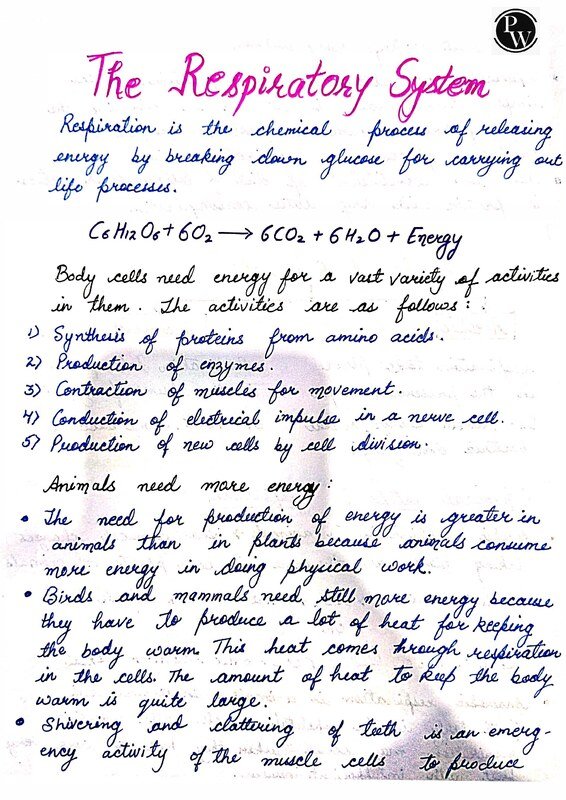 PW
The Respiratory System
Respiration is the chemical process of releasing
energy by breaking down glucose for carrying out
life processes.
C6H12O6 + 6O2 ⟶ 6CO2 + 6H2O + Energy
Body cells need energy for a vast variety of activities
in them. The activities are as follows:
1) Synthesis of proteins from amino acids.
2) Production of enzymes.
3) Contraction of muscles for movement.
4) Conduction of electrical impulse in a nerve cell.
5) Production of new cells by cell division.
Animals need more energy:
• The need for production of energy is greater in
animals than in plants because animals consume
more energy in doing physical work.
• Birds and mammals need still more energy because
they have to produce a lot of heat for keeping
the body warm. This heat comes through respiration
in the cells. The amount of heat to keep the body
warm is quite large.
• Shivering and clattering of teeth is an emerg-
ency activity of the muscle cells to produce